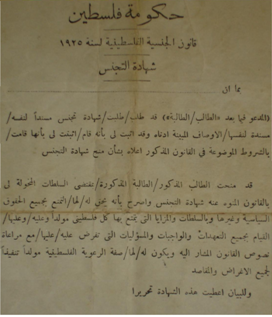 حكومة فلسطين
قانون الجنسية الفلسطينية لسنة ١٩٢٥
شهادة التجنس
بما ان
(المدعو فيما بعد «الطالب/الطالبة») قد طلب/طلبت/شهادة تجنس مستنداً لنفسه/
مسندة لنفسها/الاوصاف المبينة ادناه وقد اثبت لي بأنه قام/اثبتت لي بأنها قامت/
بالشروط الموضوعة في القانون المذكور اعلاه بشأن منح شهادة التجنس
قد منحت الطالب المذكور/الطالبة المذكورة/بمقتضى السلطات المخولة لي
بالقانون المنوه عنه شهادة التجنس واصرح بأنه يحق له/لها/التمتع بجميع الحقوق
السياسية وغيرها وبالسلطات والمزايا التي يتمتع بها كل فلسطيني مولداً وعليه/وعليها/
القيام بجميع التعهدات والواجبات والمسؤليات التي تفرض عليه/عليها/مع مراعاة
نصوص القانون المشار اليه ويكون له/لها/صفة الرعوية الفلسطينية مولداً تنفيذاً
لجميع الاغراض والمقاصد
وللبيان اعطيت هذه الشهادة تحريرا